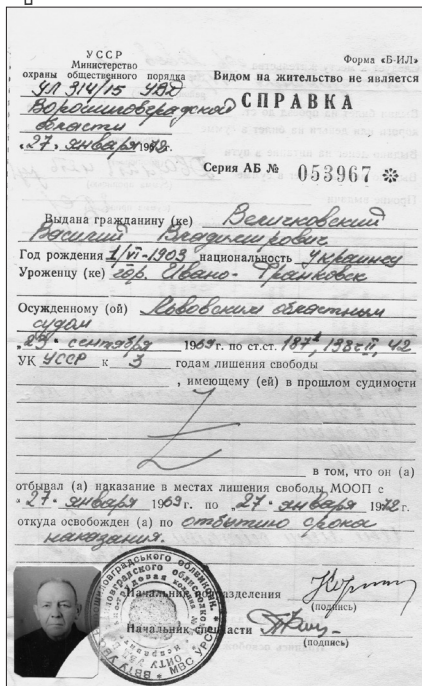 УССР
Министерство
охраны общественного порядка
УЛ 314/15 УВД
Ворошиловградской
области
„27“ января 1972г.
Форма «Б-ИЛ»
Видом на жительство не является
СПРАВКА
Серия АБ № 053967 ※
Выдана гражданину (ке) Величковский
Василий Владимирович
Год рождения 1/VI-1903 национальность украинец
Уроженцу (ке) гор. Ивано-Франковск
Осужденному (ой) Львовским областным
судом
„23“ сентября 1969 г. по ст.ст. 187¹, 138 ч II, 42
УК УССР к 3 годам лишения свободы
, имеющему (ей) в прошлом судимости
в том, что он (а)
отбывал (а) наказание в местах лишения свободы МООП с
„27“ января 1969 г. по „27“ января 1972 г.
откуда освобожден (а) по отбытию срока
наказания.
Начальник подразделения
(подпись)
Начальник спецчасти
(подпись)